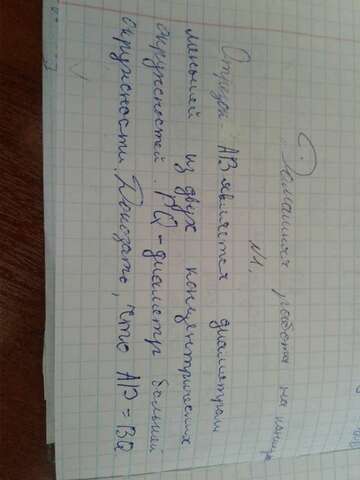 Домашняя работа на
№1.
Отрезок AB является диаметром
меньшей из двух концентрических
окружностей. PQ - диаметр большей
окружности. Доказать, что AP = BQ